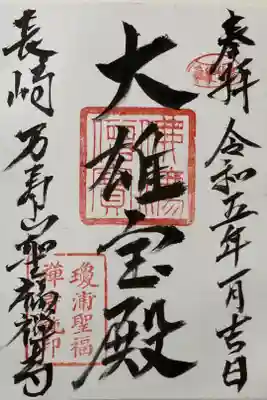 奉拝 令和五年一月吉日
大雄宝殿
長崎 万寿山聖福禅寺
佛法僧寶
瓊浦聖福